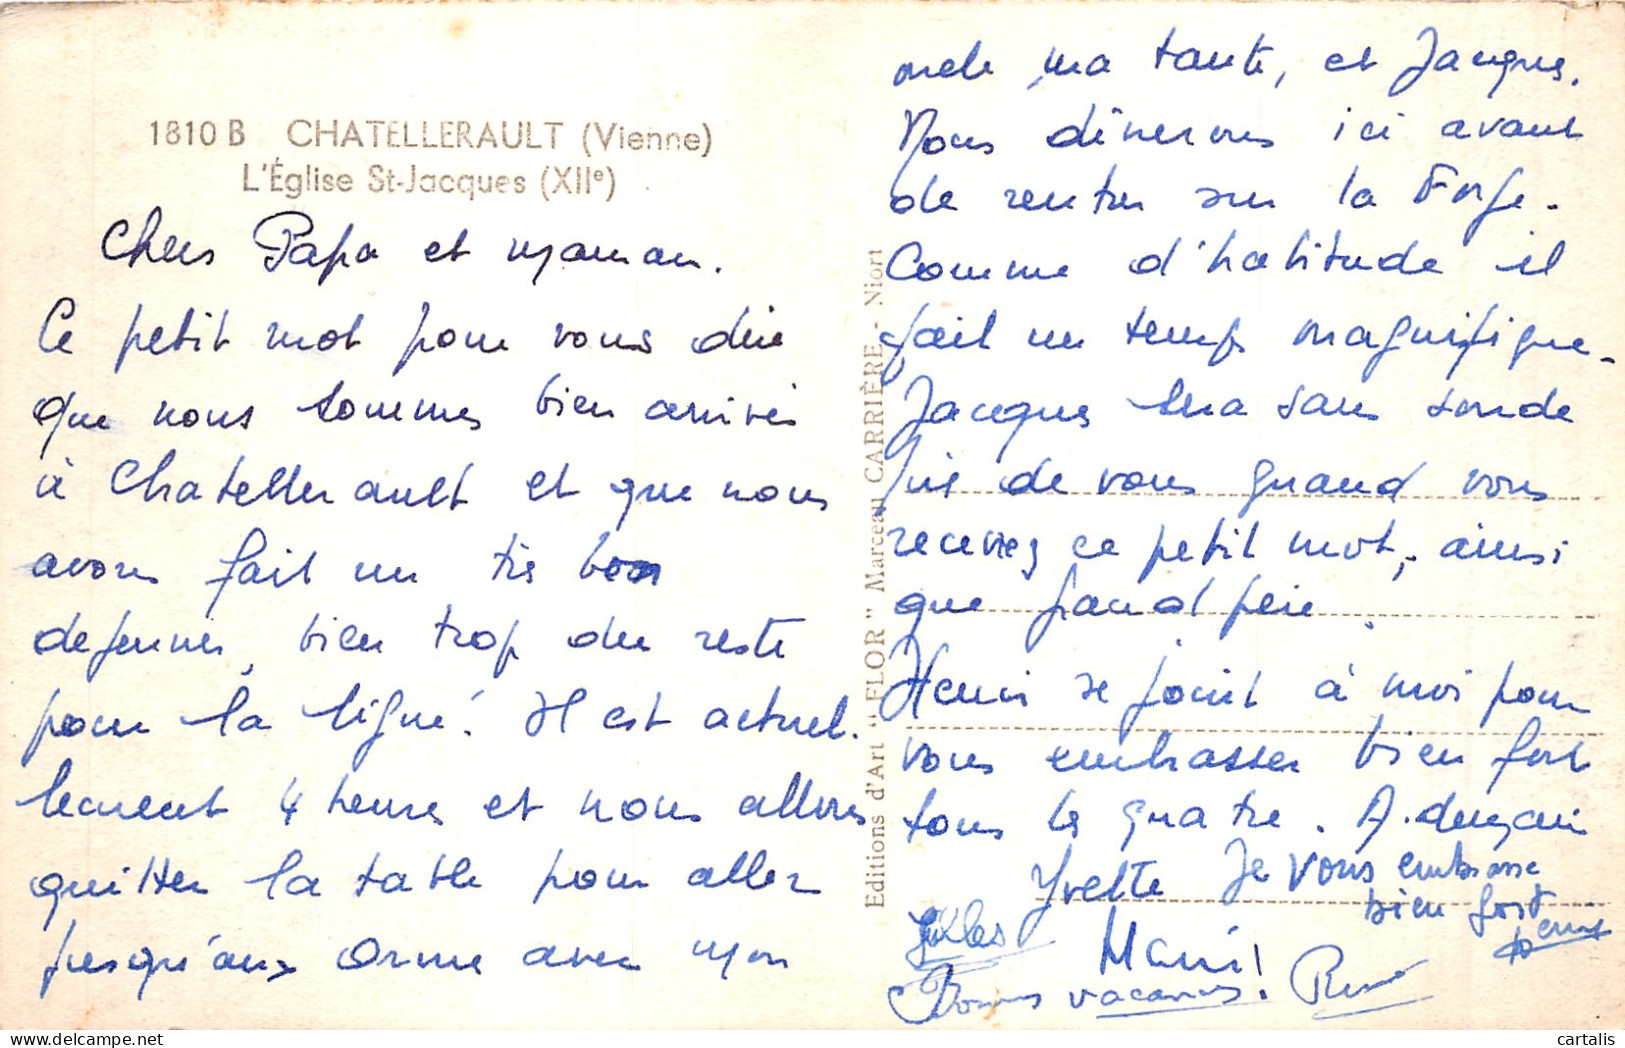 1810 B CHATELLERAULT (Vienne)
L'Église St-Jacques (XIIe)
Chers Papa et Maman.
Ce petit mot pour vous dire
que nous sommes bien arrivés
à Chatellerault et que nous
avons fait un très bon
dejeuner, bien trop du reste
pour la ligne! Il est actuel-
lement 4 heures et nous allons
quitter la table pour aller
jusqu'aux Orme avec mon
oncle, ma tante, et Jacques.
Nous dînerons ici avant
de rentrer sur la Forge.
Comme d'habitude il
fait un temps magnifique.
Jacques sera sans doute
près de vous quand vous
recevrez ce petit mot, ainsi
que grand père.
Henri se joint à moi pour
vous embrasser bien fort
tous les quatre. A demain
Yvette Je vous embrasse
bien fort
Gilles
Marie!
Bonnes vacances! René
Editions d'Art "FLOR" Marceau CARRIÈRE - Niort
cartalis